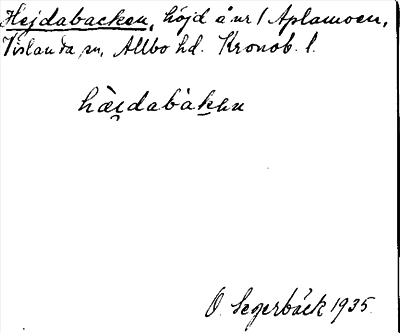 Hejdabacken, höjd å nr 1 Aplamoen,
Vislanda sn, Allbo hd. Kronob. l.
hæ̀i̯dabàkən
O. Segerbäck 1935.